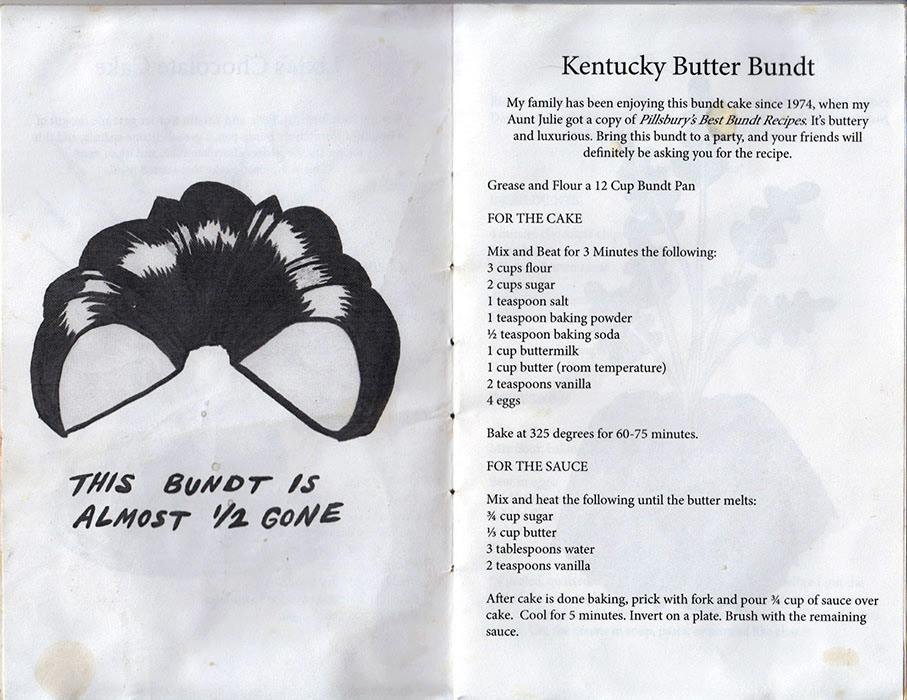 THIS BUNDT IS
ALMOST 1/2 GONE
Kentucky Butter Bundt
My family has been enjoying this bundt cake since 1974, when my
Aunt Julie got a copy of Pillsbury's Best Bundt Recipes. It's buttery
and luxurious. Bring this bundt to a party, and your friends will
definitely be asking you for the recipe.
Grease and Flour a 12 Cup Bundt Pan
FOR THE CAKE
Mix and Beat for 3 Minutes the following:
3 cups flour
2 cups sugar
1 teaspoon salt
1 teaspoon baking powder
½ teaspoon baking soda
1 cup buttermilk
1 cup butter (room temperature)
2 teaspoons vanilla
4 eggs
Bake at 325 degrees for 60-75 minutes.
FOR THE SAUCE
Mix and heat the following until the butter melts:
¾ cup sugar
⅓ cup butter
3 tablespoons water
2 teaspoons vanilla
After cake is done baking, prick with fork and pour ¾ cup of sauce over
cake.  Cool for 5 minutes. Invert on a plate. Brush with the remaining
sauce.